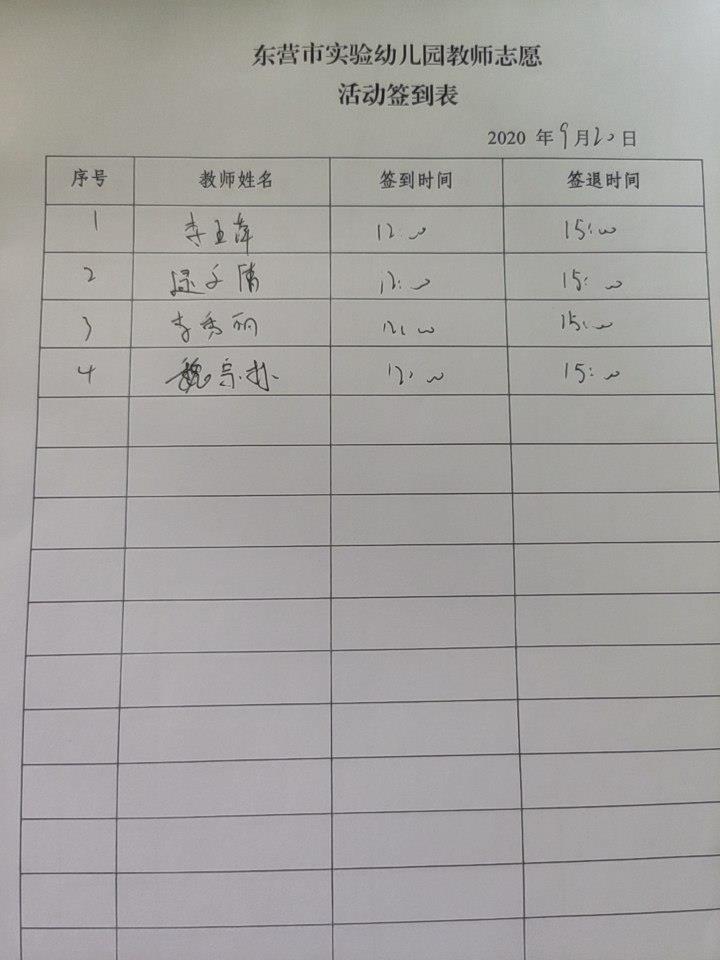 东营市实验幼儿园教师志愿
活动签到表
2020 年 9 月 20 日
序号 教师姓名 签到时间 签退时间
1 李玉萍 12:00 15:00
2 12:00 15:00
3 李秀丽 12:00 15:00
4 魏宗 12:00 15:00